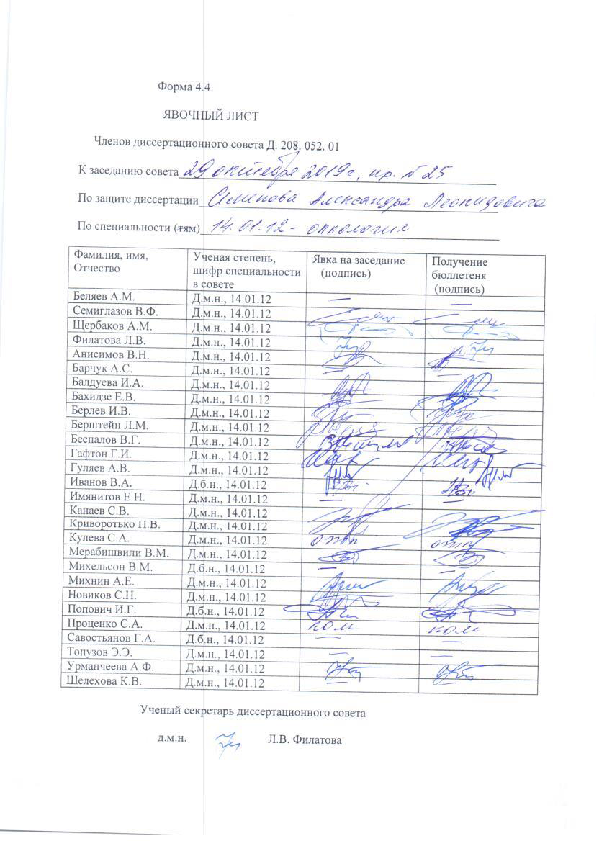 Форма 4.4
ЯВОЧНЫЙ ЛИСТ
Членов диссертационного совета Д. 208. 052. 01
К заседанию совета 29 октября 2019г, пр. №25
По защите диссертации Семенова Александра Леонидовича
По специальности (ям) 14.01.12 - онкология
Фамилия, имя, Отчество Ученая степень, шифр специальности в совете Явка на заседание (подпись) Получение бюллетеня (подпись)
Беляев А.М. Д.м.н., 14.01.12
Семиглазов В.Ф. Д.м.н., 14.01.12
Щербаков А.М. Д.м.н., 14.01.12
Филатова Л.В. Д.м.н., 14.01.12
Анисимов В.Н. Д.м.н., 14.01.12
Барчук А.С. Д.м.н., 14.01.12
Балдуева И.А. Д.м.н., 14.01.12
Бахидзе Е.В. Д.м.н., 14.01.12
Берлев И.В. Д.м.н., 14.01.12
Берштейн Л.М. Д.м.н., 14.01.12
Беспалов В.Г. Д.м.н., 14.01.12
Гафтон Г.И. Д.м.н., 14.01.12
Гуляев А.В. Д.м.н., 14.01.12
Иванов В.А. Д.б.н., 14.01.12
Имянитов Е.Н. Д.м.н., 14.01.12
Канаев С.В. Д.м.н., 14.01.12
Криворотько П.В. Д.м.н., 14.01.12
Кулева С.А. Д.м.н., 14.01.12
Мерабишвили В.М. Д.м.н., 14.01.12
Михельсон В.М. Д.б.н., 14.01.12
Михнин А.Е. Д.м.н., 14.01.12
Новиков С.Н. Д.м.н., 14.01.12
Попович И.Г. Д.б.н., 14.01.12
Проценко С.А. Д.м.н., 14.01.12
Савостьянов Г.А. Д.б.н., 14.01.12
Топузов Э.Э. Д.м.н., 14.01.12
Урманчеева А.Ф Д.м.н., 14.01.12
Шелехова К.В. Д.м.н., 14.01.12
Ученый секретарь диссертационного совета
д.м.н. Л.В. Филатова